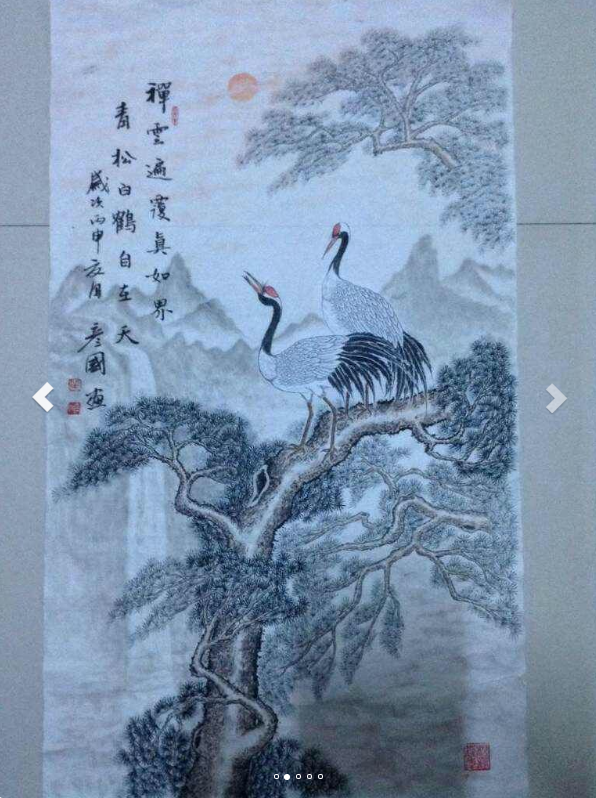 禪雲遍覆真如界
青松白鶴自在天
歲次丙申
彥國畫